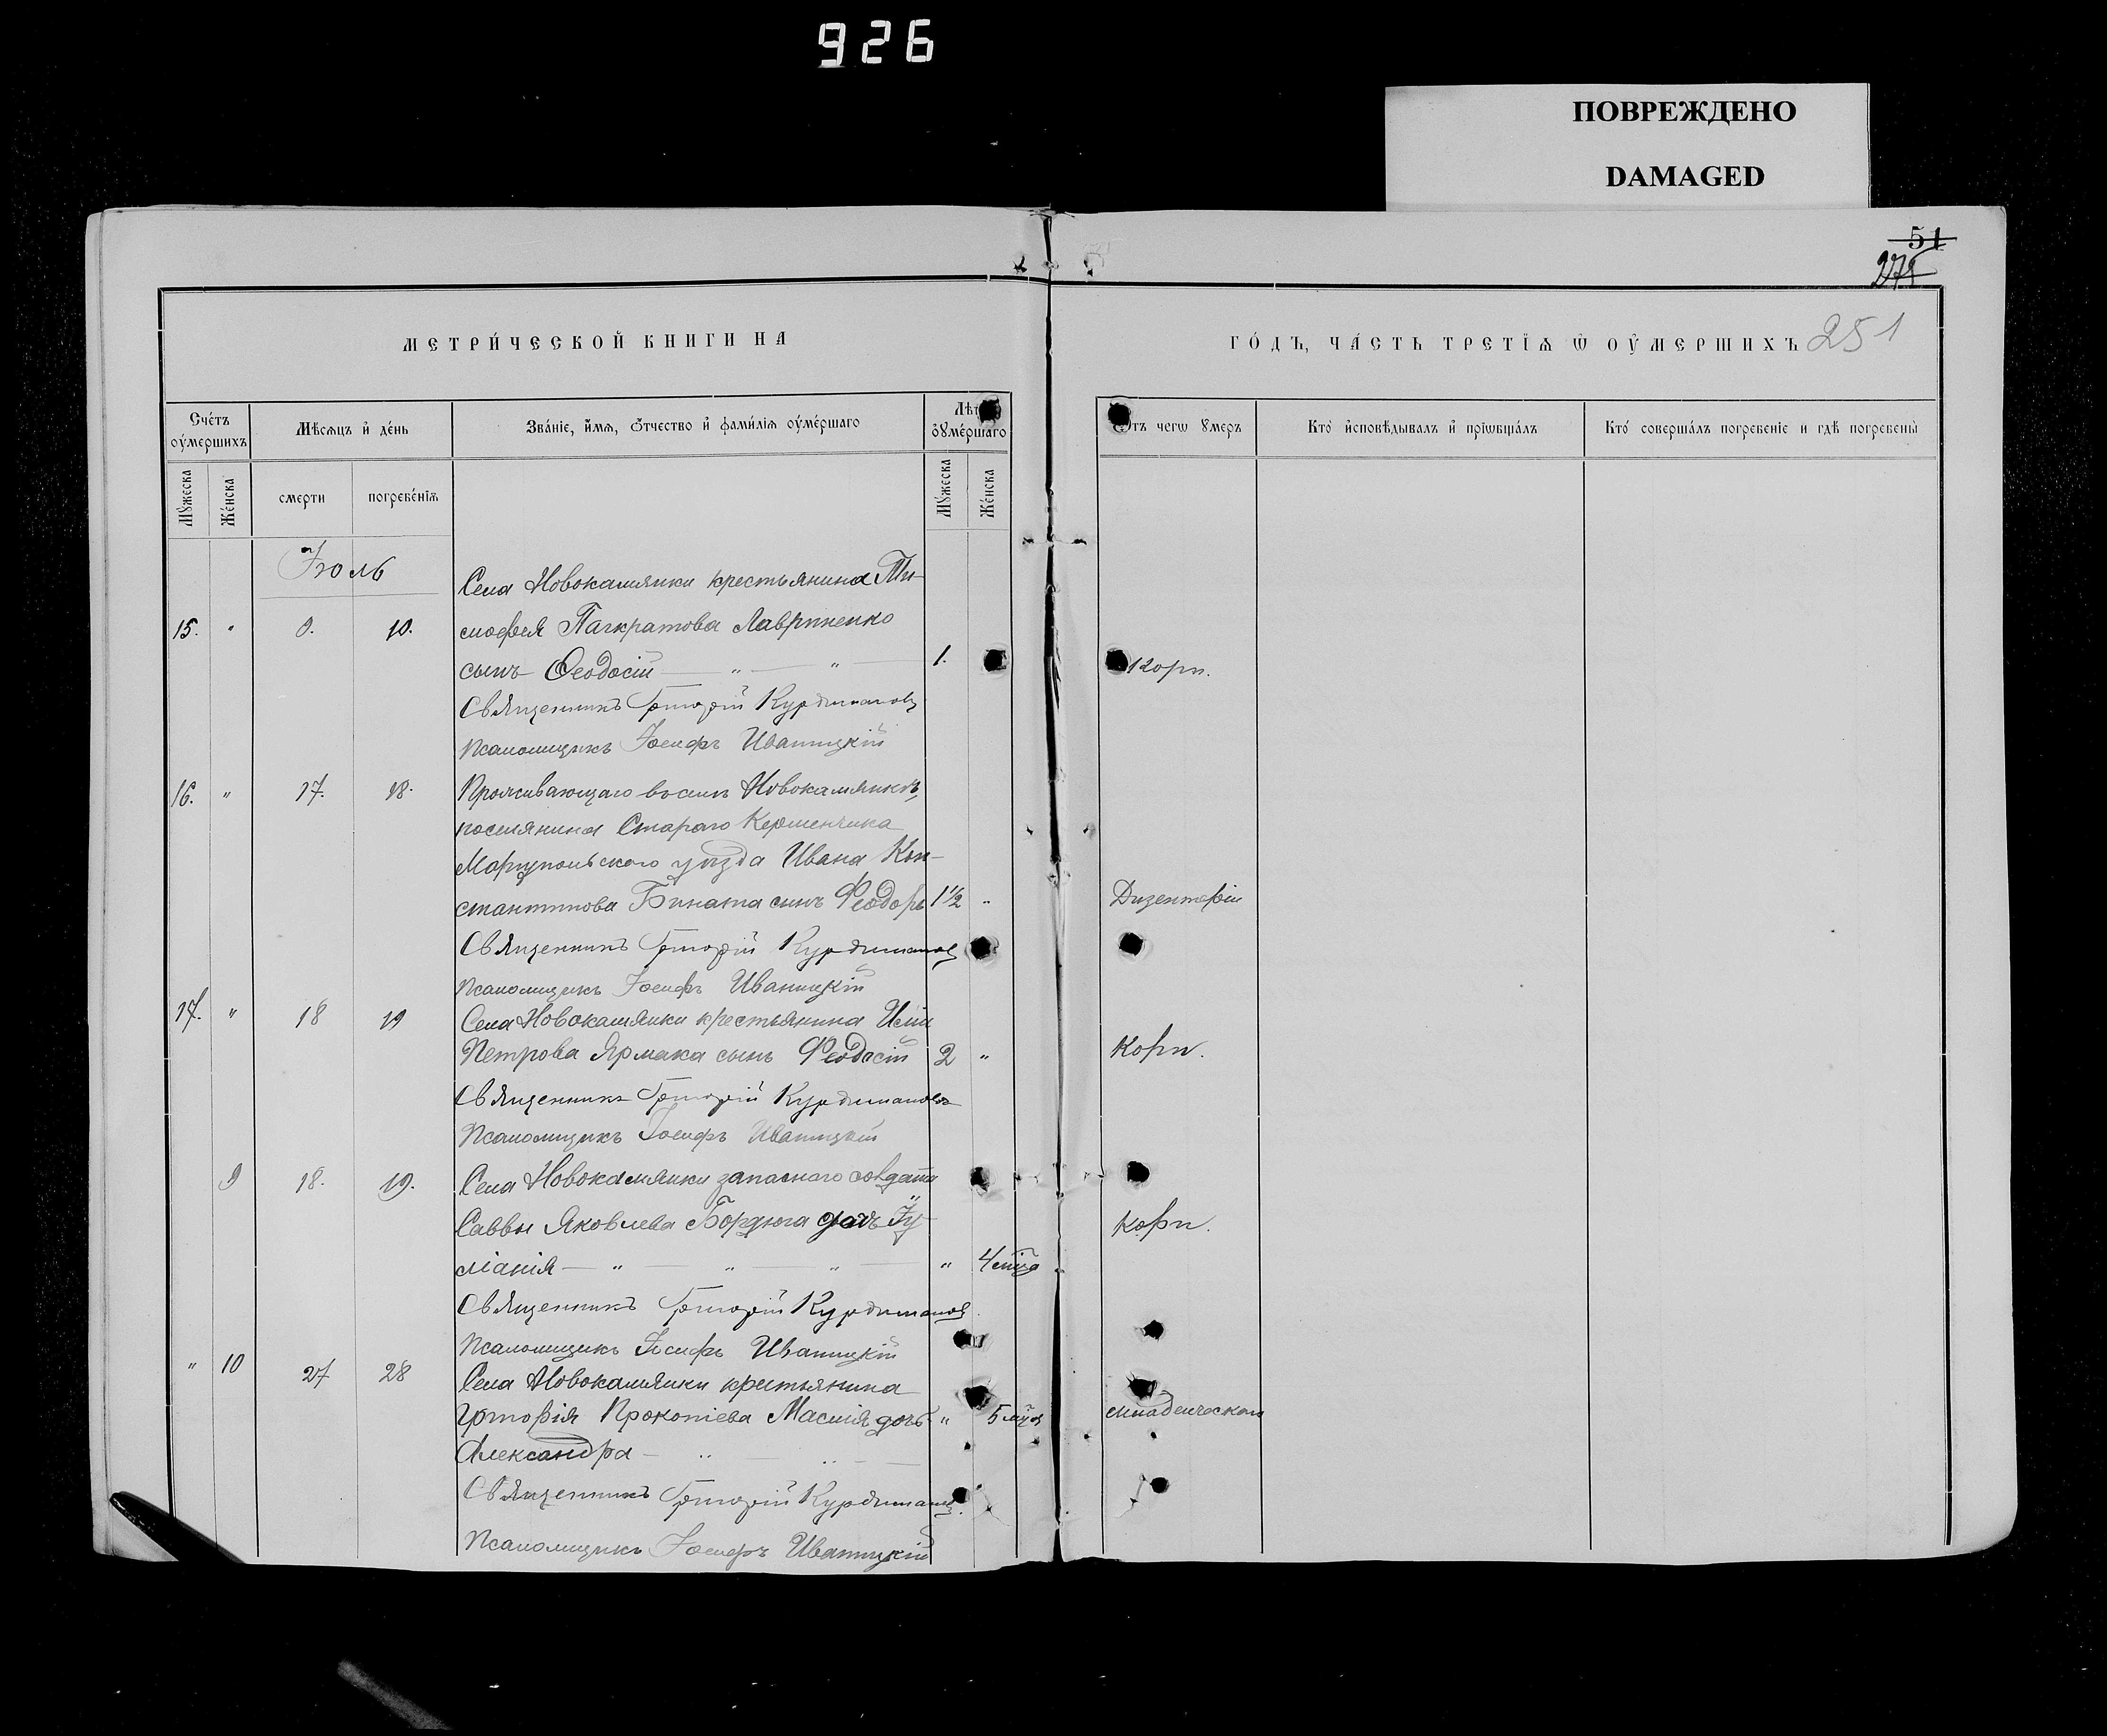 926
ПОВРЕЖДЕНО
DAMAGED
51
275
251
МЕТРИ́ЧЕСКОЙ КНИГИ НА
ГО́ДЪ, ЧА́СТЬ ТРЕТЇѦ Ѡ ОУ҆МЕРШИХЪ
Счетъ оумершихъ
Мужеска
Женска
Мѣсяцъ и день
смерти
погребенїѧ
Званїе, имѧ, отчество и фамилїѧ оумершаго
Лѣт оумершаго
Мужеска
Женска
Отъ чегѡ умеръ
Кто исповѣдывалъ и прїѡбщалъ
Кто совершалъ погребенїе и гдѣ погребены
Іюль
Села Новокамянки крестьянина Ти-
15. " 9. 10. моѳея Панкратова Лавриненко
сынъ Ѳеодосій — " — " — 1. Кори.
Священникъ Григорій Курдимановъ
Псаломщикъ Іосифъ Иваницкій
16. " 17. 18. Проживающаго въ селѣ Новокамянкѣ,
поселянина Стараго Керменчика
Маріупольскаго уѣзда Ивана Кон-
стантинова Бината сынъ Ѳеодоръ 1½ " Дизентеріи
Священникъ Григорій Курдимановъ
Псаломщикъ Іосифъ Иваницкій
17. " 18 19 Села Новокамянки крестьянина Исіи
Петрова Ярмака сынъ Ѳеодосій 2 " Кори.
Священникъ Григорій Курдимановъ
Псаломщикъ Іосифъ Иваницкій
9 18. 19. Села Новокамянки запаснаго солдата
Саввы Яковлева Бордюга дочь Іу- Кори.
ліанія — " — " — " — " 4 мца
Священникъ Григорій Курдимановъ
Псаломщикъ Іосифъ Иваницкій
" 10 27 28 Села Новокамянки крестьянина
Прокопіева Маслія дочь " 5 мцов младенческаго
Александра — " — " —
Священникъ Григорій Курдимановъ
Псаломщикъ Іосифъ Иваницкій